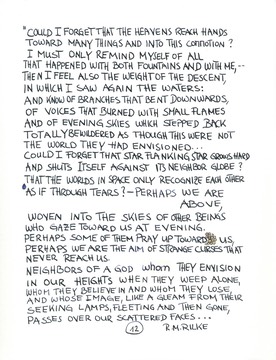 "COULD I FORGET THAT THE HEAVENS REACH HANDS
TOWARD MANY THINGS AND INTO THIS COMMOTION?
I MUST ONLY REMIND MYSELF OF ALL
THAT HAPPENED WITH BOTH FOUNTAINS AND WITH ME,--
THEN I FEEL ALSO THE WEIGHT OF THE DESCENT,
IN WHICH I SAW AGAIN THE WATERS:
AND KNOW OF BRANCHES THAT BENT DOWNWARDS,
OF VOICES THAT BURNED WITH SMALL FLAMES
AND OF EVENING SKIES WHICH STEPPED BACK
TOTALLY BEWILDERED AS THOUGH THIS WERE NOT
THE WORLD THEY HAD ENVISIONED...
COULD I FORGET THAT STAR FLANKING STAR GROWS HARD
AND SHUTS ITSELF AGAINST ITS NEIGHBOR GLOBE?
THAT THE WORLDS IN SPACE ONLY RECOGNIZE EACH OTHER
AS IF THROUGH TEARS? – PERHAPS WE ARE
ABOVE,
WOVEN INTO THE SKIES OF OTHER BEINGS
WHO GAZE TOWARD US AT EVENING.
PERHAPS SOME OF THEM PRAY UP TOWARD US,
PERHAPS WE ARE THE AIM OF STRANGE CURSES THAT
NEVER REACH US.
NEIGHBORS OF A GOD WHOM THEY ENVISION
IN OUR HEIGHTS WHEN THEY WEEP ALONE,
WHOM THEY BELIEVE IN AND WHOM THEY LOSE,
AND WHOSE IMAGE, LIKE A GLEAM FROM THEIR
SEEKING LAMPS, FLEETING AND THEN GONE,
PASSES OVER OUR SCATTERED FACES...
12 R.M. RILKE